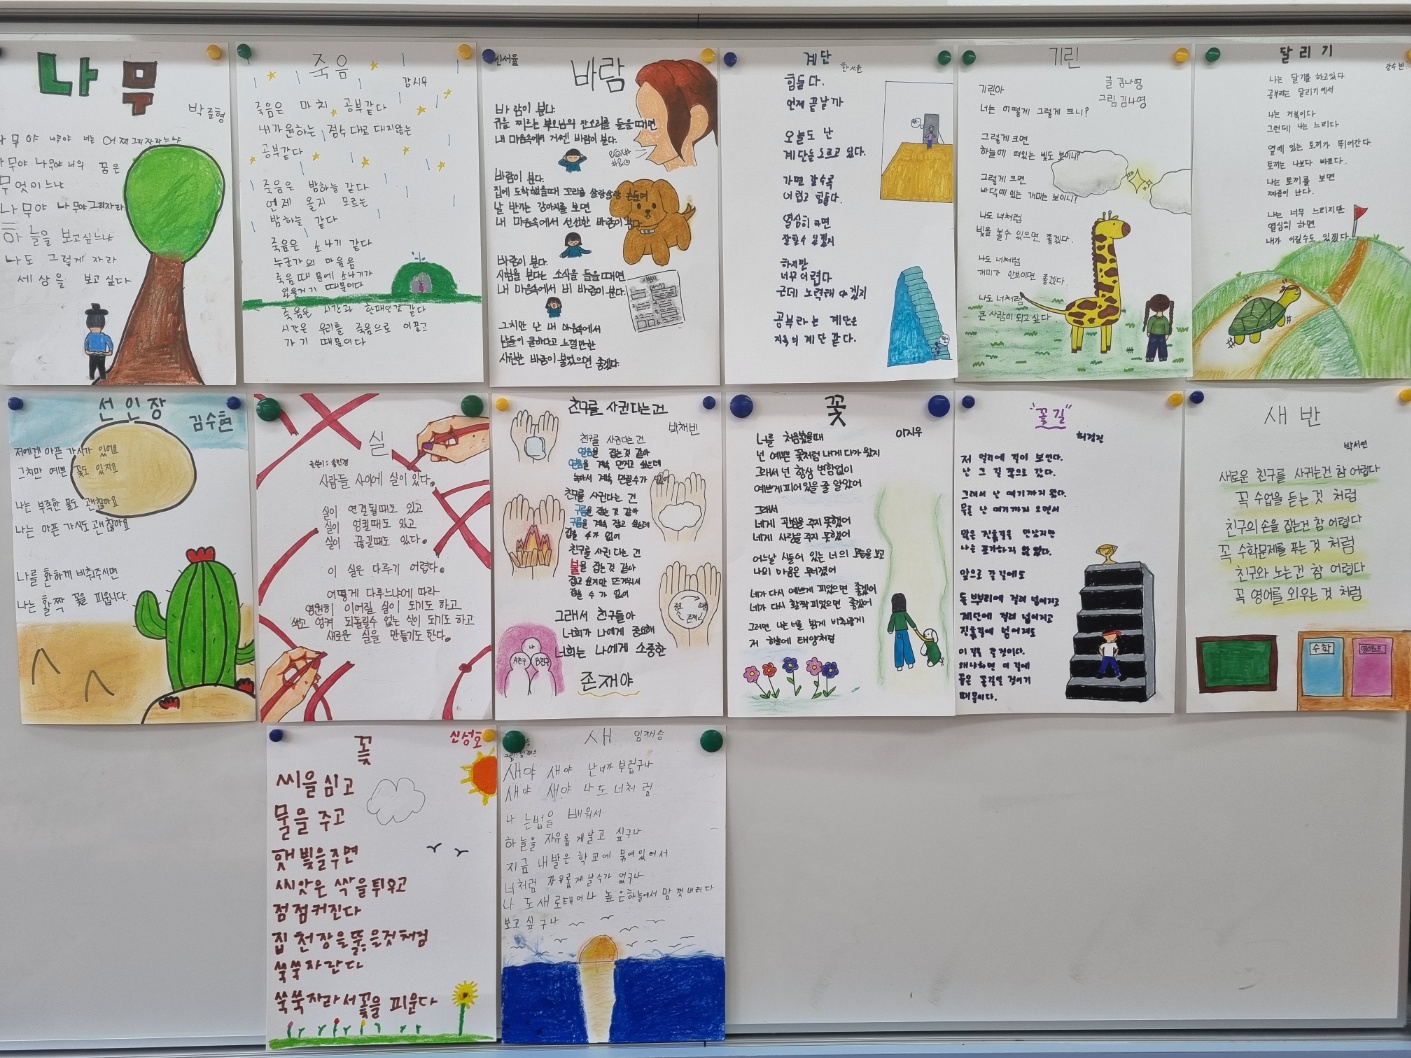 나무
박준형
나무야 나무야 너는 어쩌면 자라느냐
나무야 나무야 너의 꿈은
무엇이느냐
나무야 나무야 그 자리라
하늘을 보고 싶느냐
나도 그렇게 자라
세상을 보고 싶다
죽음
강시우
죽음은 마치 공부같다
내가 원하는 점수대로 대지않는
공부같다
죽음은 밤하늘 같다
언제 올지 모르는
밤하늘 같다
죽음은 소나기 같다
누군가의 마음을
죽음 때문에 소나기가
죽음은 시간과 한대만간 같다
시간은 우리를 죽음으로 이끌고
가기 때문이다
바람
신서율
바람이 분다
귀를 찌르는 부모님의 잔소리를 들을때면
내 마음속에 거센 바람이 분다.
바람이 분다.
집에 도착했을때 꼬리를 살랑살랑 흔들어
날 반기는 강아지를 보면
내 마음속에서 선선한 바람이 분다.
바람이 분다.
시험을 본다는 소식을 들을때면
내 마음속에서 비 바람이 분다.
그치만 난 내 마음속에서
시원한 바람이 불었으면 좋겠다.
계단
한서윤
힘들다.
언제 끝날까
오늘도 난
계단을 오르고 있다.
가면 갈수록
어렵고 힘들다.
열심히 하면
잘할수 있겠지
하지만
너무 어렵다
근데 노력해 야겠지
공부라는 계단은
지옥의 계단 같다.
기린
글 김나영
그림 김나영
기린아
너는 어떻게 그렇게 크니?
그렇게 크면
하늘에 떠있는 빛도 보이니?
그렇게 크면
바닥에 있는 개미는 보이니?
나도 너처럼
빛을 볼수 있으면 좋겠다.
나도 너처럼
개미가 안보이면 좋겠다.
나도 너처럼
큰 사람이 되고싶다
달리기
나는 달리기를 하고있다
공부라는 달리기에서
나는 거북이다
그런데 나는 느리다.
옆에 있는 토끼가 뛰어간다
토끼는 나보다 빠르다.
나는 토끼를 보면
짜증이 난다.
나는 너무 느리지만
열심히 하면
내가 이길수도 있겠다
선인장
김수현
저에겐 아픈 가시가 있어요
그치만 예쁜 꽃도 있지요
나는 부족한 물도 괜찮아요
나는 아픈 가시도 괜찮아요
나를 환하게 비춰주시면
나는 활짝 꽃을 피웁니다.
실
사람들 사이에 실이 있다.
실이 연결될때도 있고
실이 엉킬때도 있고
실이 끊길때도 있다.
이 실은 다루기 어렵다.
어떻게 다루느냐에 따라
영원히 이어질 실이 되기도 하고,
꼬고 엉켜 되돌릴수 없는 실이 되기도 하고
새로운 실을 만들기도 한다.
친구를 사귄다는건
박채빈
친구를 사귄다는 건
얼음을 잡는 것 같아
얼음을 계속 만지고 싶는데
녹아서 계속 만질수가 없어
친구를 사귄다는 건
구름을 잡는 것 같아
구름을 계속 잡고 싶은데
잡을 수가 없어
친구를 사귄다는 건
불을 잡는것 같아
잡고 싶지만 뜨거워서
잡을 수가 없어
그래서 친구들아
너희가 나에게 중요해
너희는 나에게 소중한
존재야
A친구
B친구
꽃
이지우
너를 처음봤을때
넌 예쁜 꽃처럼 나에게 다가 왔지
그래서 넌 항상 변함없이
예쁘게 피어있을 줄 알았어
그래서
네게 관심을 주지 못했어
네게 사랑을 주지 못했어
어느날 시들어 있는 너의 모습을 보고
나의 마음은 무너졌어
네가 다시 예쁘게 피었으면 좋겠어
네가 다시 활짝 피었으면 좋겠어
그러면 나는 너를 밝게 비추줄게
저 하늘에 태양처럼
"꽃길"
허경진
저 멀리에 길이 보인다.
난 그 길 쪽으로 갔다.
그래서 난 여기까지 왔다.
무릎 난 여기까지 오면서
많은 진흙길을 만났지만
나는 포기하지 않았다.
앞으로 갈 길에도
돌 뿌리에 걸려 넘어지고
계단에 걸려 넘어지고
진흙길에 넘어져도
이 길을 갈 것이다.
왜냐하면 이 길에
끝은 꽃길일 것이기
때문이다.
새 반
박서연
새로운 친구를 사귀는건 참 어렵다
꼭 수업을 듣는 것 처럼
친구의 손을 잡는건 참 어렵다
꼭 수학문제를 푸는 것 처럼
친구와 노는건 참 어렵다
꼭 영어를 외우는 것 처럼
수학
꽃
신성호
씨을 심고
물을 주고
햇빛을주면
씨앗은 싹을 틔우고
점점커진다
집 천장을뚫을것처럼
쑥쑥 자란다
쑥쑥자라서 꽃을 피운다
새
임재승
새야 새야 난 네가 부럽구나
새야 새야 나도 너처럼
나는법을 배워서
하늘을 자유롭게 날고 싶구나
지금 내 발은 학교에 묶여있어서
너처럼 자유롭게 날수가 없구나
나도 새로태어나 높은하늘에서 맘껏 내려다
보고 싶구나